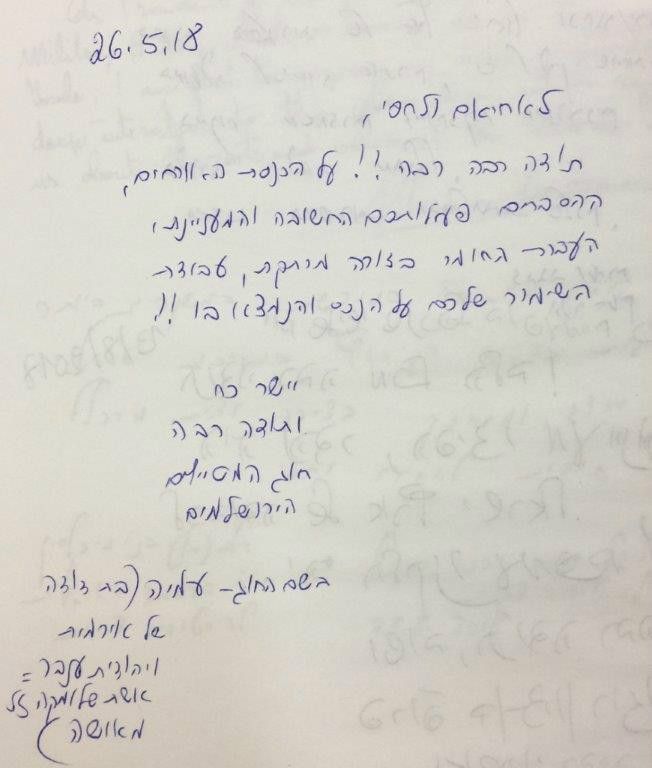 26.5.18
לאחיאם ולחסי,
תודה רבה רבה!! על הכנסת האורחים,
ההסברים פעלותכם החשובה והמעניינת,
העברת החומר בצורה מרתקת, עבודת
השימור שלכם על הנכס והנמצא בו!!
יישר כח
ותודה רבה
חוג המטיילים
הירושלמים
בשם החוג - עמיה (בת דודה
של אירמית
ויהודית ענבר =
אשת שלומקה ז"ל
מאושה)